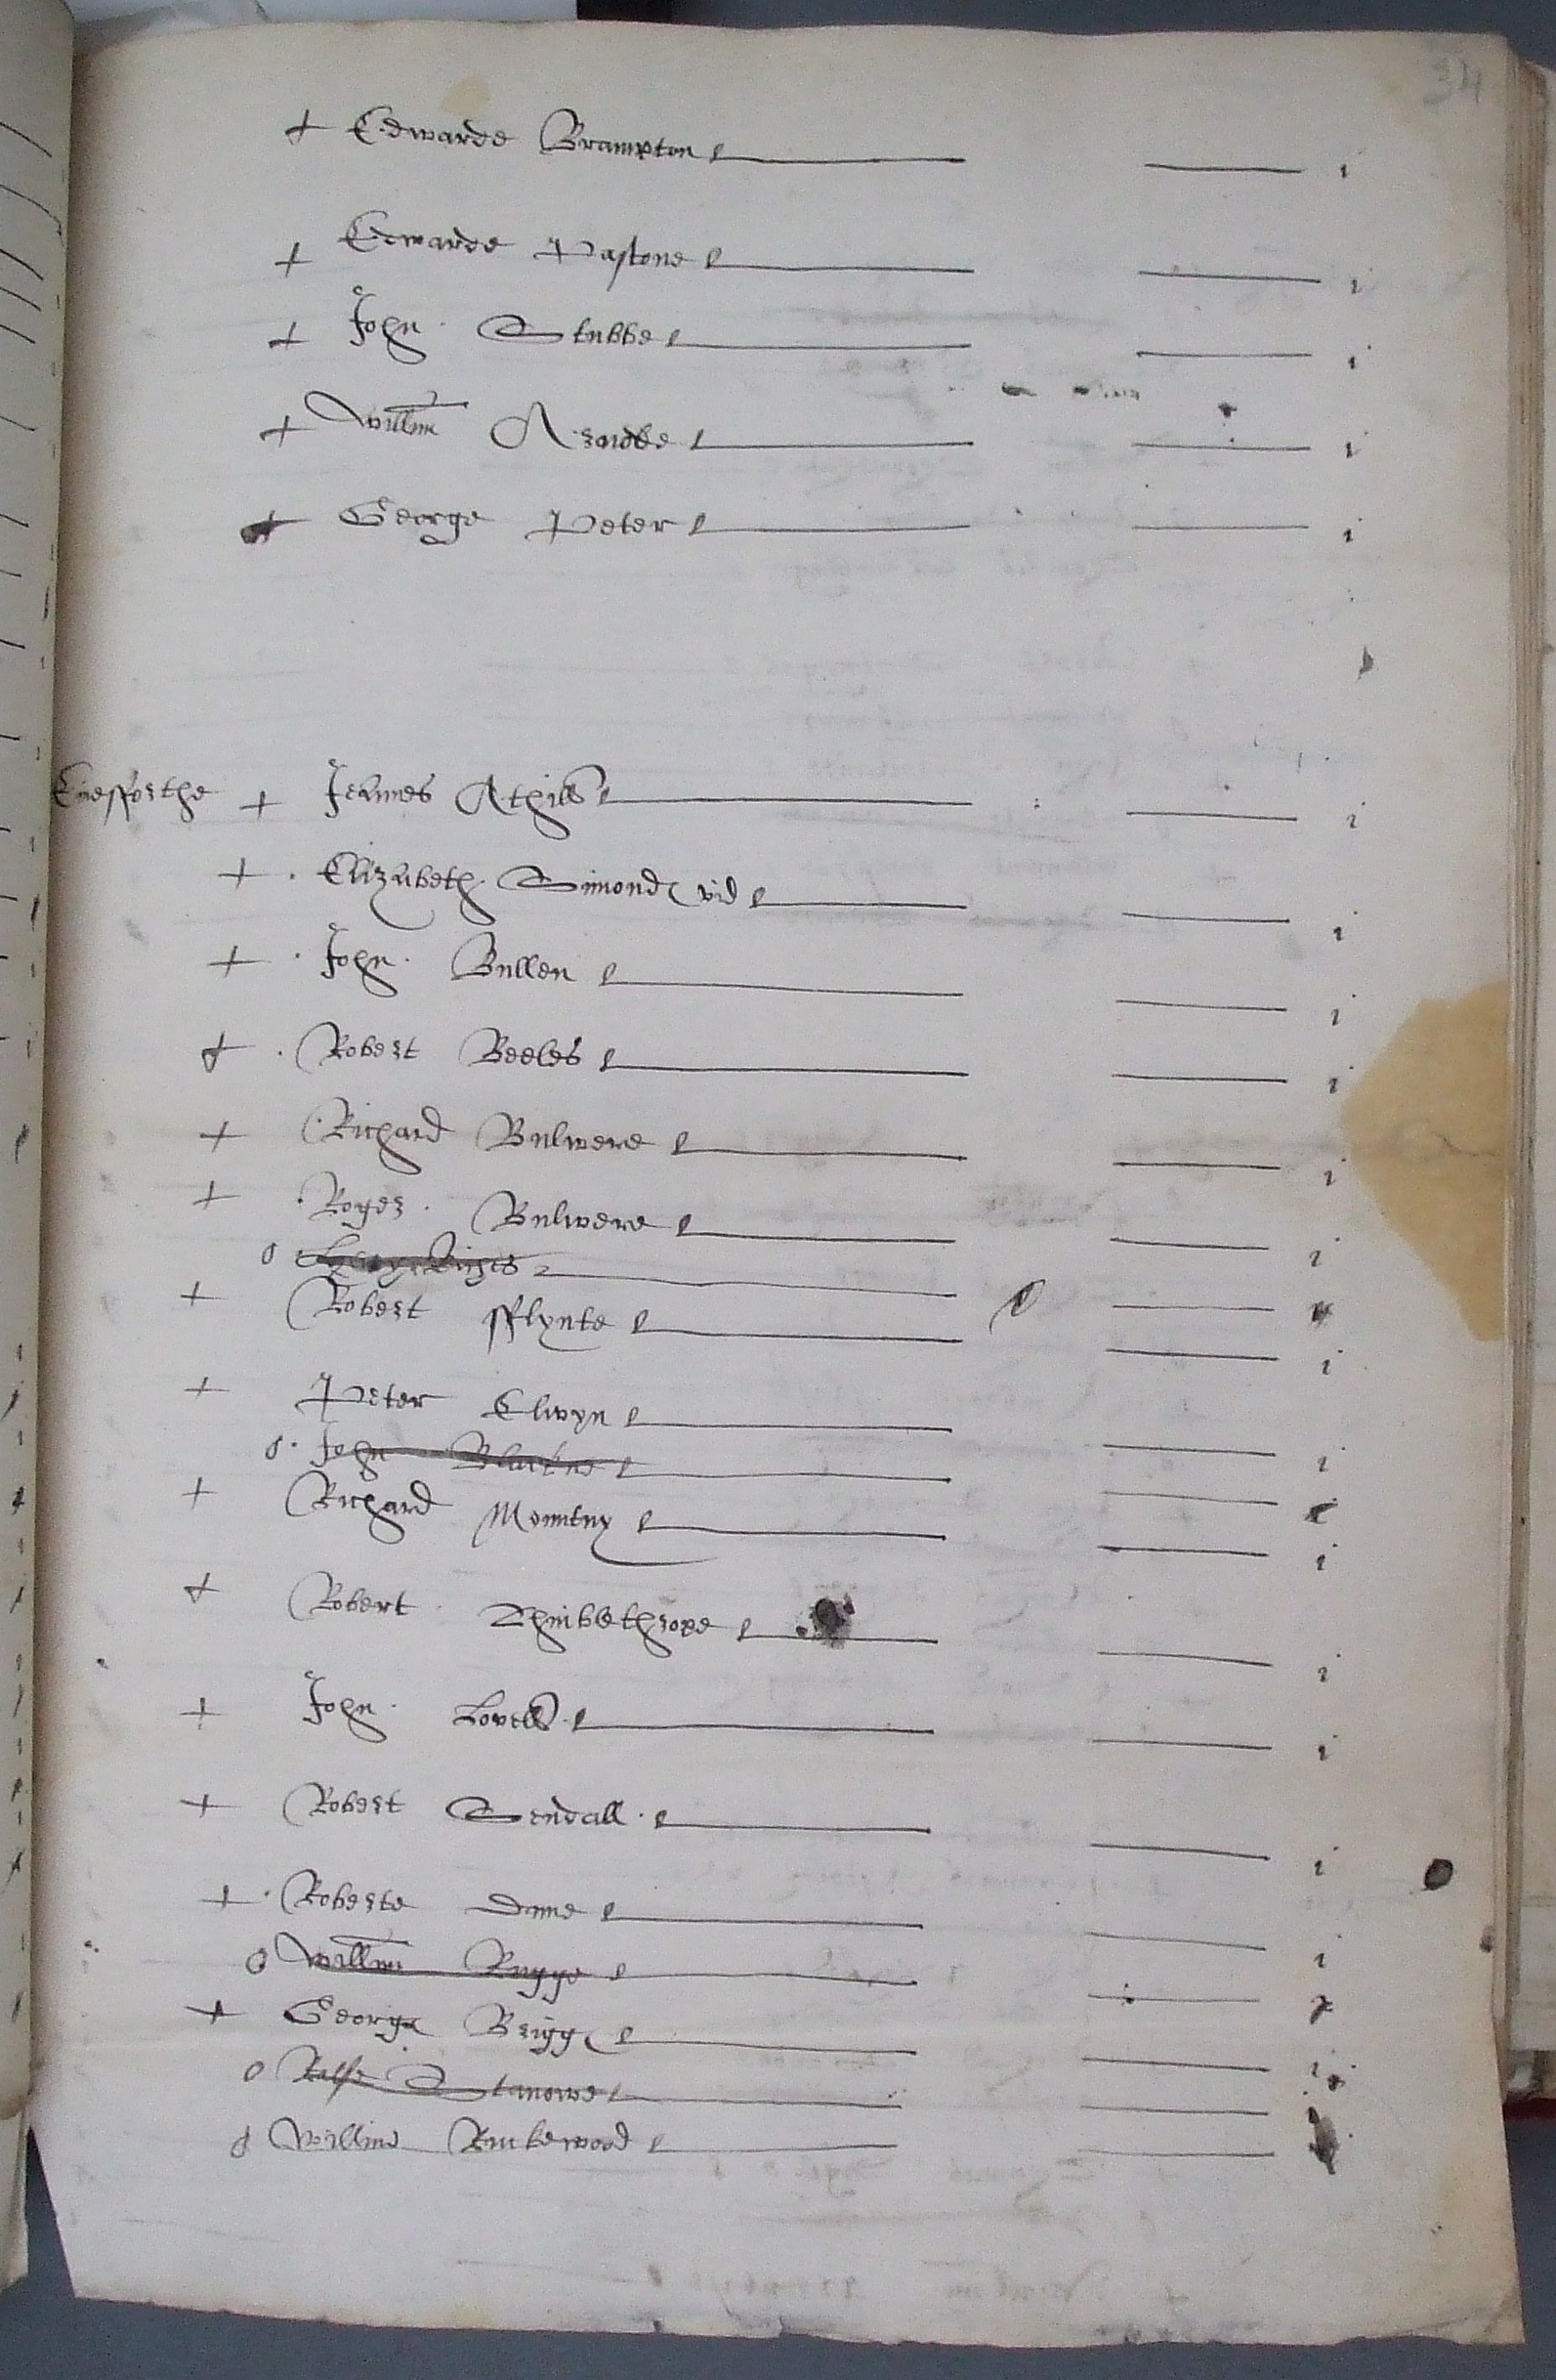 34
+ Edwarde Brampton i
+ Edwarde Pastone i
+ John Stubbe i
+ Willm i
+ George Peter i
Einefforthe + Jeames Athill i
+ Elizabeth Simond vid i
+ John Bullen i
+ Robert Beeles i
+ Richard Bulwere i
+ Roger Bulwere i
o
+ Robert fflynte i
+ Peter Elwyn i
o John
+ Richard Mountny i
+ Robert Thimblethrope i
+ John Lovell i
+ Robert Sendall i
+ Roberte Dune i
o Willm Rugge
+ George Brigg i
o Rafe Stanowe
o Willim Rukewood